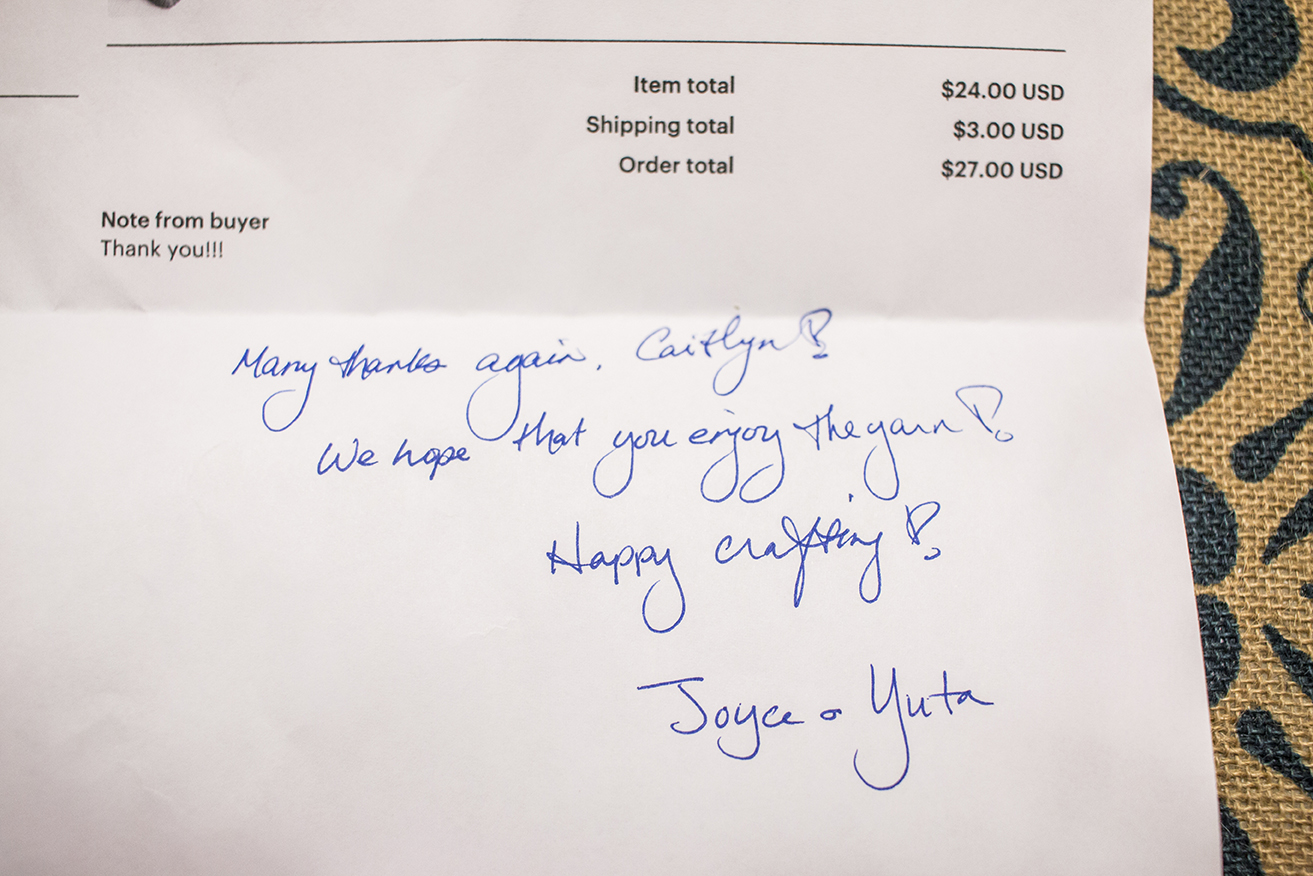 Item total $24.00 USD
Shipping total $3.00 USD
Order total $27.00 USD
Note from buyer
Thank you!!!
Many thanks again, Caitlyn!
We hope that you enjoy the yarn!
Happy crafting!
Joyce & Yuta